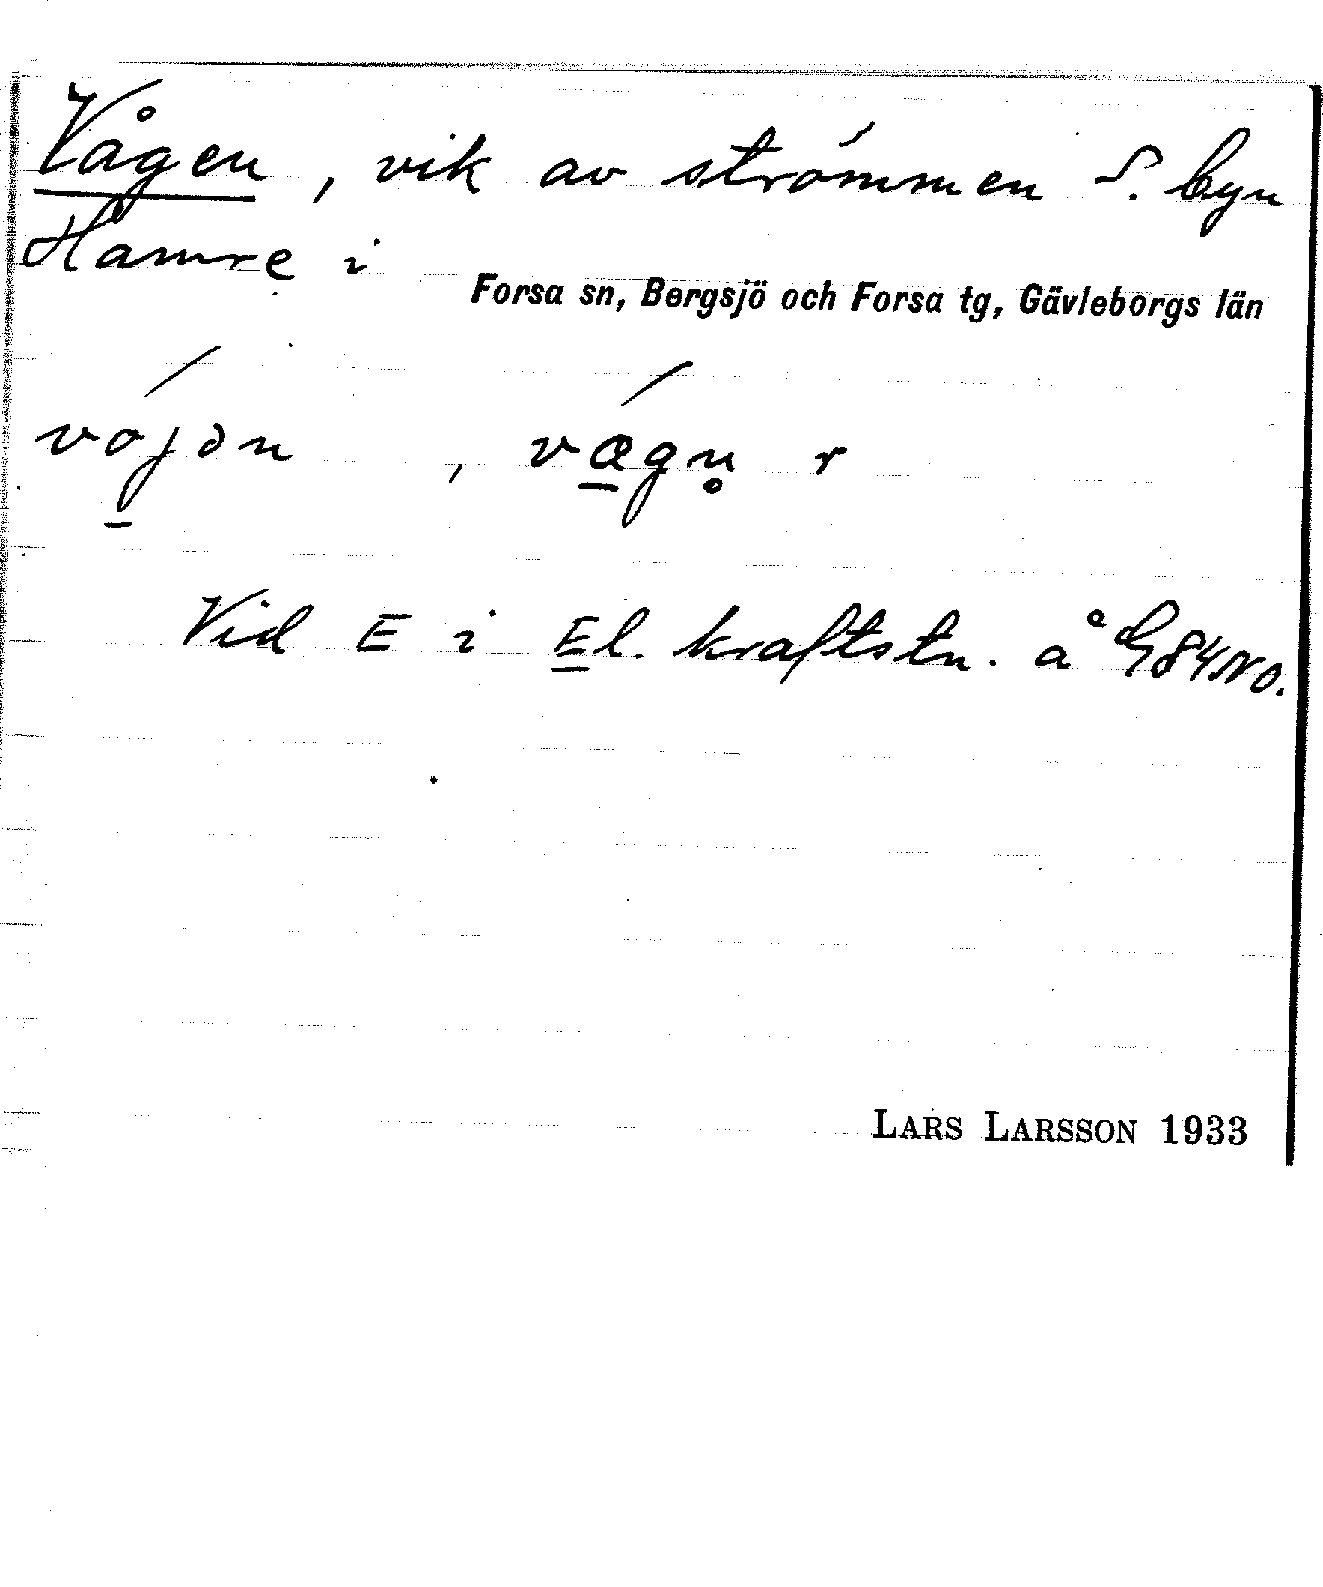 Vågen, vik av strömmen S. byn
Hamre i
Forsa sn, Bergsjö och Forsa tg, Gävleborgs län
vo̱jən, væ̱gn̥ r
Vid E i El. kraftstn. å G 84 NO.
LARS LARSSON 1933